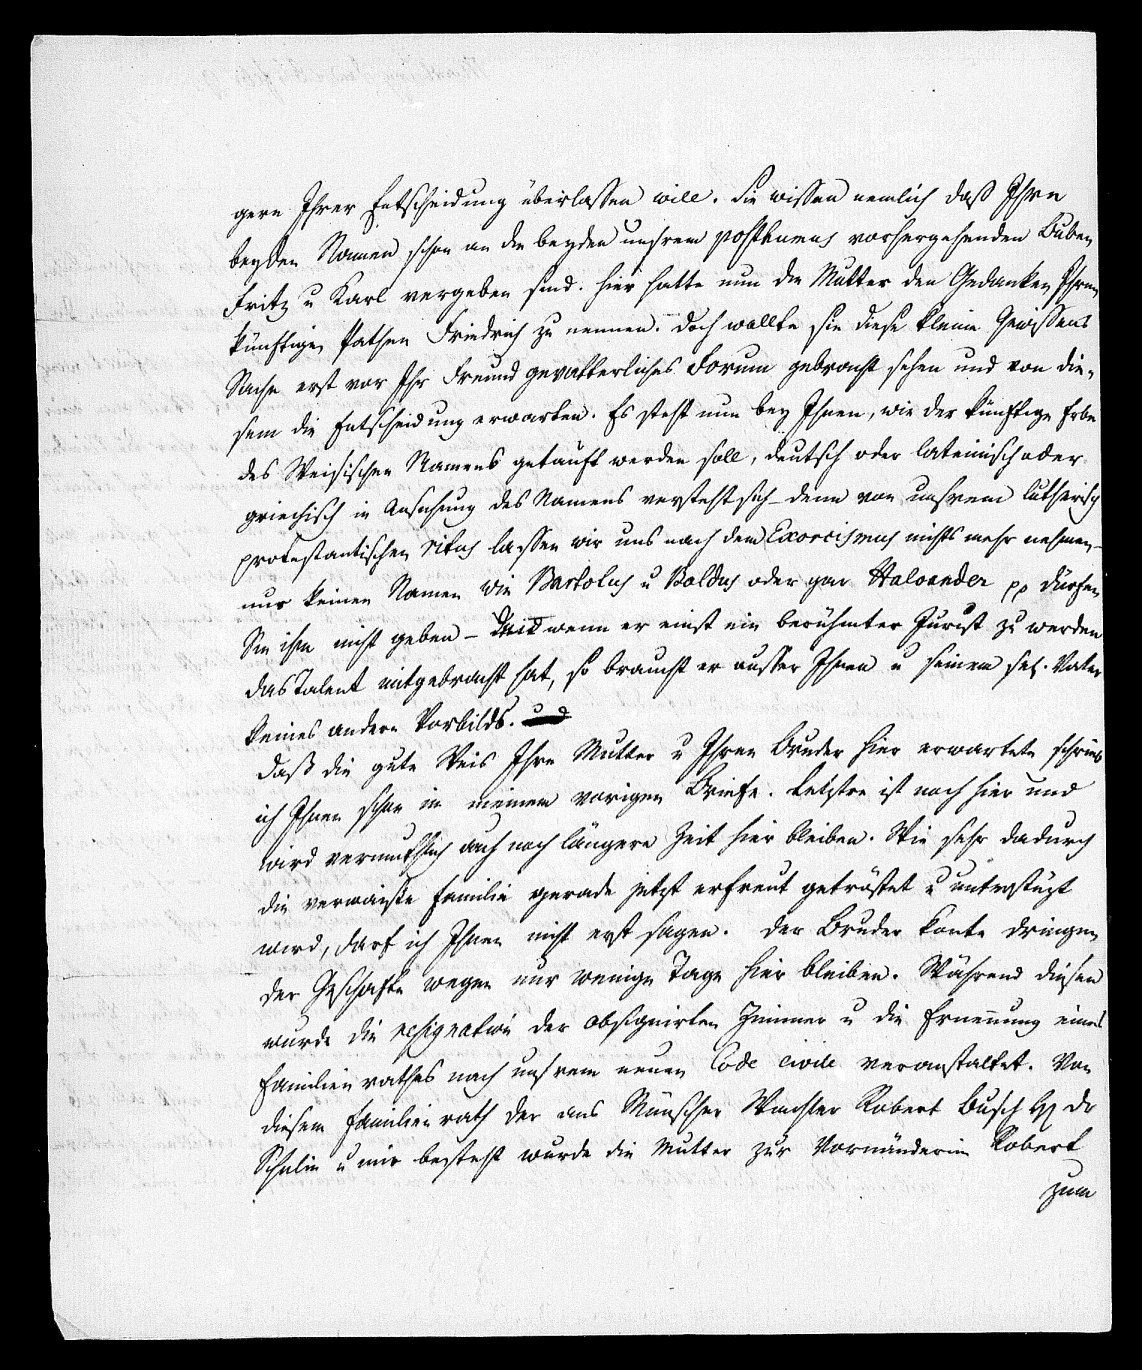 gern Ihrer Entscheidung überlassen will. Sie wissen nemlich daß Ihre
beyden Namen schon an die beyden unsrem posthumus vorhergehenden Buben
Fritz u Karl vergeben sind. hier hatte nun die Mutter den Gedanken Ihren
künftigen Pathen Friedrich zu nennen. doch wollte sie diese kleine Gewissens
Sache erst vor Ihr Freund gevatterliches Forum gebracht sehen und von die-
sem die Entscheidung erwarten. Es steht nun bey Ihnen, wie der künftige Erbe
des Weisischen Namens getauft werden soll, deutsch oder lateinisch oder
griechisch in Ansehung des Namens versteht sich – denn von unsrem lutherisch
protestantischen ritus lassen wir uns nach dem Exorcismus nichts mehr nehmen –
nur keinen Namen wie Bartolus u Baldus oder gar Haloander pp dürfen
Sie ihm nicht geben – wenn er einst ein berühmter Jurist zu werden
das Talent mitgebracht hat, so braucht er ausser Ihnen u seinem sel. Vater
keines andern Vorbilds.
daß die gute Weis Ihre Mutter u Ihren Bruder hier erwartete schrieb
ich Ihnen schon in meinem vorigen Briefe. Letztre ist noch hier und
wird vermuthlich auch noch längere Zeit hier bleiben. Wie sehr dadurch
die verwaiste Familie gerade jetzt erfreut getröstet u unterstüzt
wird, darf ich Ihnen nicht erst sagen. der Bruder konte dringen
der Geschäfte wegen nur wenige Tage hier bleiben. Während diesen
wurde die resignation der obsignirten Zimmer u die Ernennung eines
Familien rathes nach unsrem neuen Code civile veranstaltet. Von
diesem Familienrath der aus Münscher Wachler Robert Busch H dr
Schulin u mir besteht wurde die Mutter zur Vormünderin Robert
zum